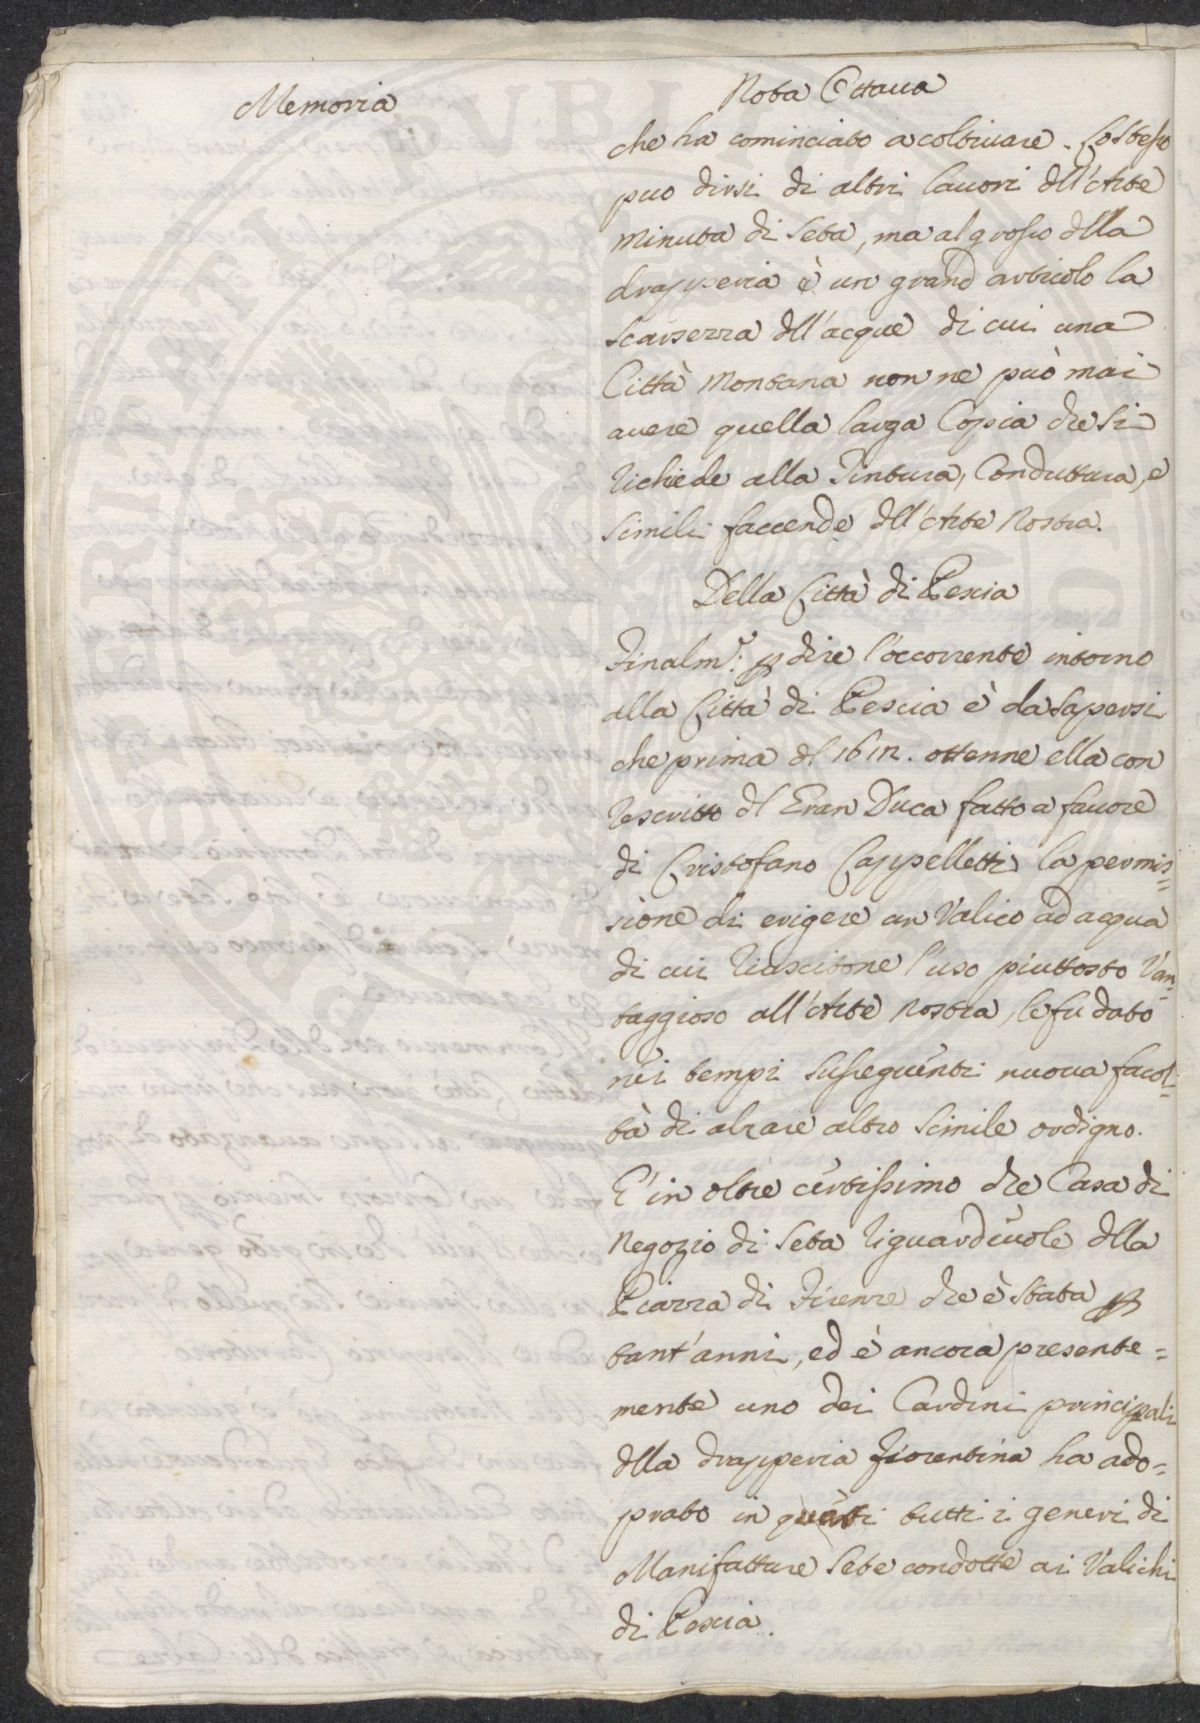 Memoria
Nota Ottava
che ha cominciato a coltivare. Lo stesso
puo dirsi di altri lavori dll'Arte
minuta di Seta, ma al grosso dlla
drapperia è un grand articolo la
Scarsezza dll'acque di cui una
Città Montana non ne può mai
avere quella larga Copia che Si
richiede alla Tintura, Conduttura, e
Simili faccende dll'Arte Nostra.
Della Città di Pescia
Finalm.e p dire l'occorrente intorno
alla Città di Pescia è da Sapersi
che prima dl 1612. ottenne ella con
rescritto dl Gran Duca fatto a favore
di Cristofano Cappelletti la permis=
sione di erigere un Valico ad acqua
di cui riuscitone l'uso piuttosto Van=
taggioso all'Arte Nostra, le fu dato
nei tempi Susseguenti nuova facol=
tà di alzare altro Simile ordigno.
E' in oltre certissimo che Casa di
Negozio di Seta riguardevole dlla
Piazza di Firenze che è Stata p
tant'anni, ed è ancora presente=
mente uno dei Cardini principali
dlla drapperia Fiorentina ha ado=
prato in quasi tutti i generi di
Manifatture Sete condotte ai Valichi
di Pescia.